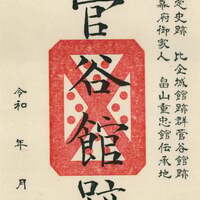 史跡 比企城館跡群菅谷館跡
幕府御家人 畠山重忠館伝承地
菅谷館跡
令和 年 月